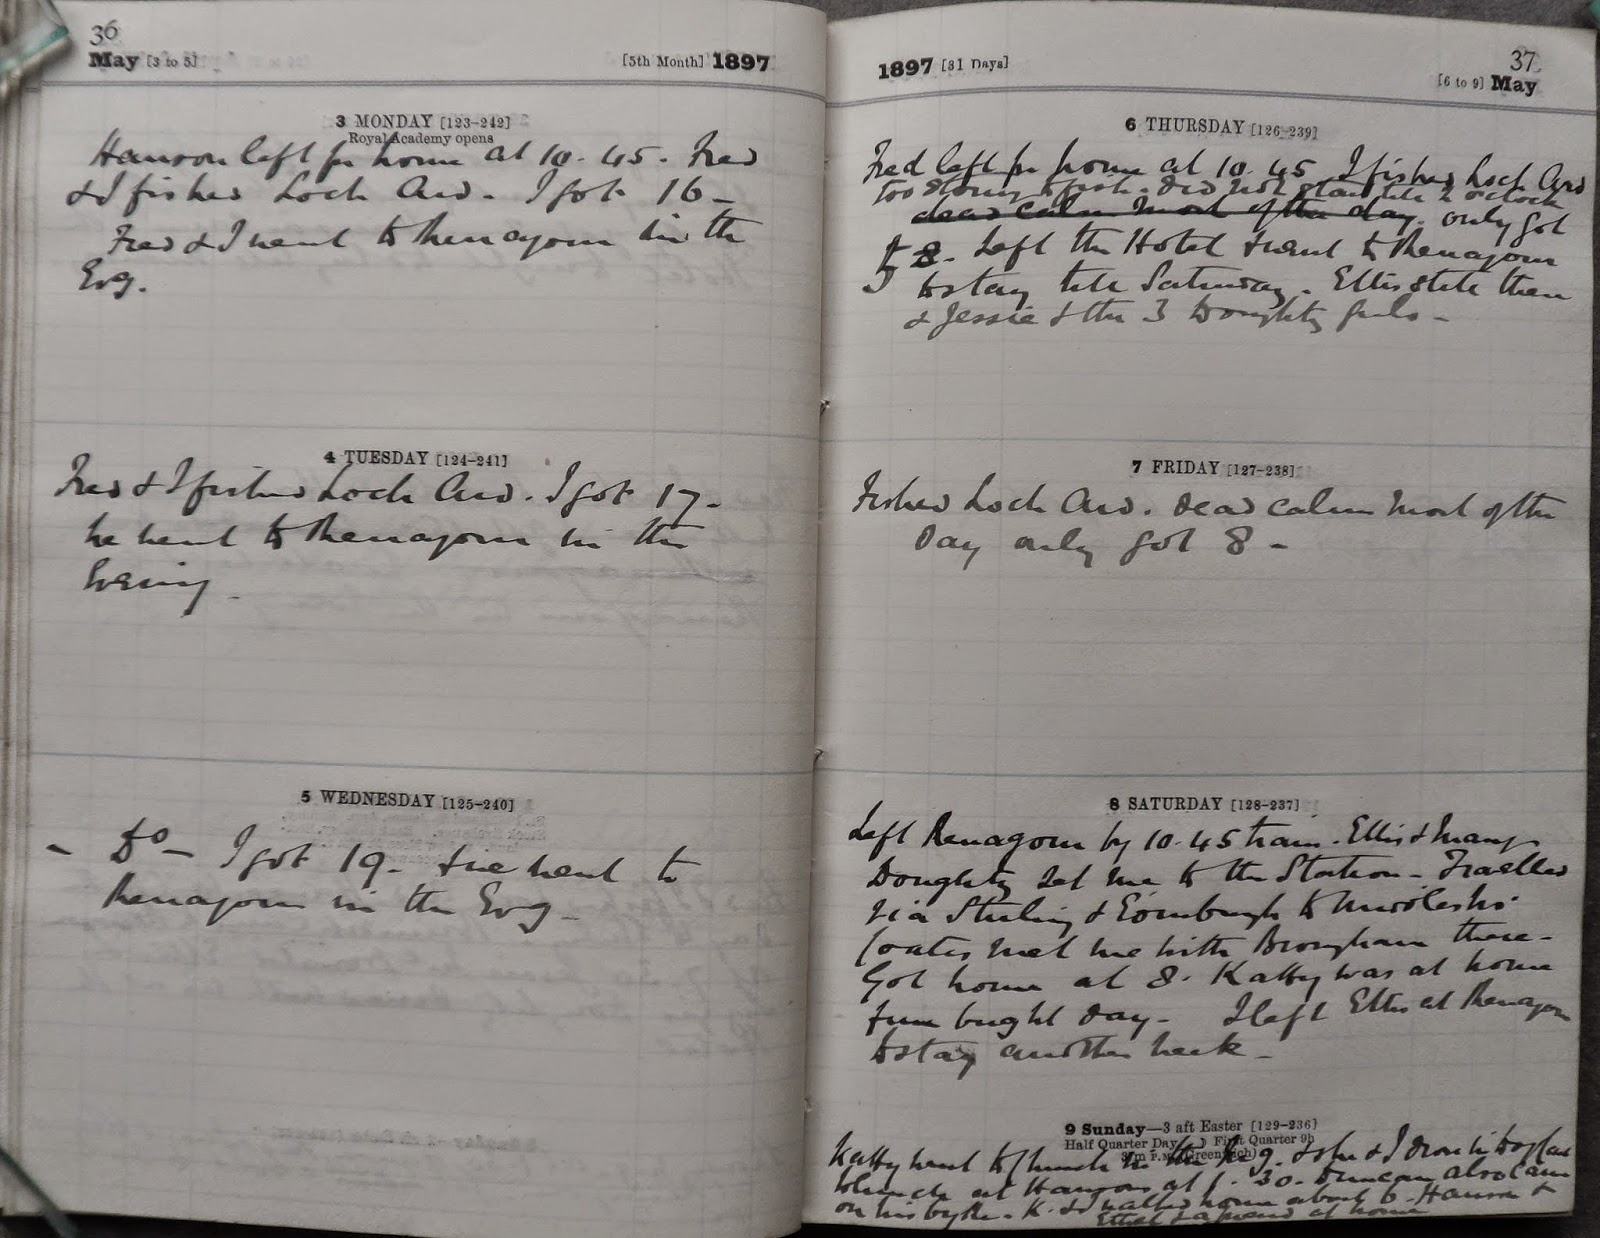 36
May [3 to 5] [5th Month] 1897
3 MONDAY [123-242]
Royal Academy opens
Hanson left for home at 10.45. Fred
& I fished Loch Ard. I got 16 -
Fred & I went to Renagour in the
Evg.
4 TUESDAY [124-241]
Fred & I fished Loch Ard. I got 17 -
he went to Renagour in the
Evening -
5 WEDNESDAY [125-240]
- Do - I got 19 - & we went to
Renagour in the Evg -
37
1897 [31 Days] [6 to 9] May
6 THURSDAY [126-239]
Fred left for home at 10.45 I fished Loch Ard
too stormy to fish. did not start till 2 o'clock
dead calm most of the day. only got
8. Left the Hotel & went to Renagour
to stay till Saturday. Ellis still there
& Jessie & the 3 Doughty girls -
7 FRIDAY [127-238]
Fished Loch Ard. dead calm most of the
day only got 8 -
8 SATURDAY [128-237]
Left Renagour by 10.45 train. Ellis & Mary
Doughty set me to the Station - Travelled
via Stirling & Edinburgh to
met me with Brougham there -
Got home at 8. Katty was at home
fine bright day - I left Ellis at Renagour
to stay another week -
9 Sunday—3 aft Easter [129-236]
Half Quarter Day. ☽ First Quarter 9h
P.M. (Greenwich)
Katty went to Church in the & I
to lunch at Hansons at 1.30. Duncan also came
on his bycke. K. & I walked home about 6. Hanson &
Ethel & a friend at home